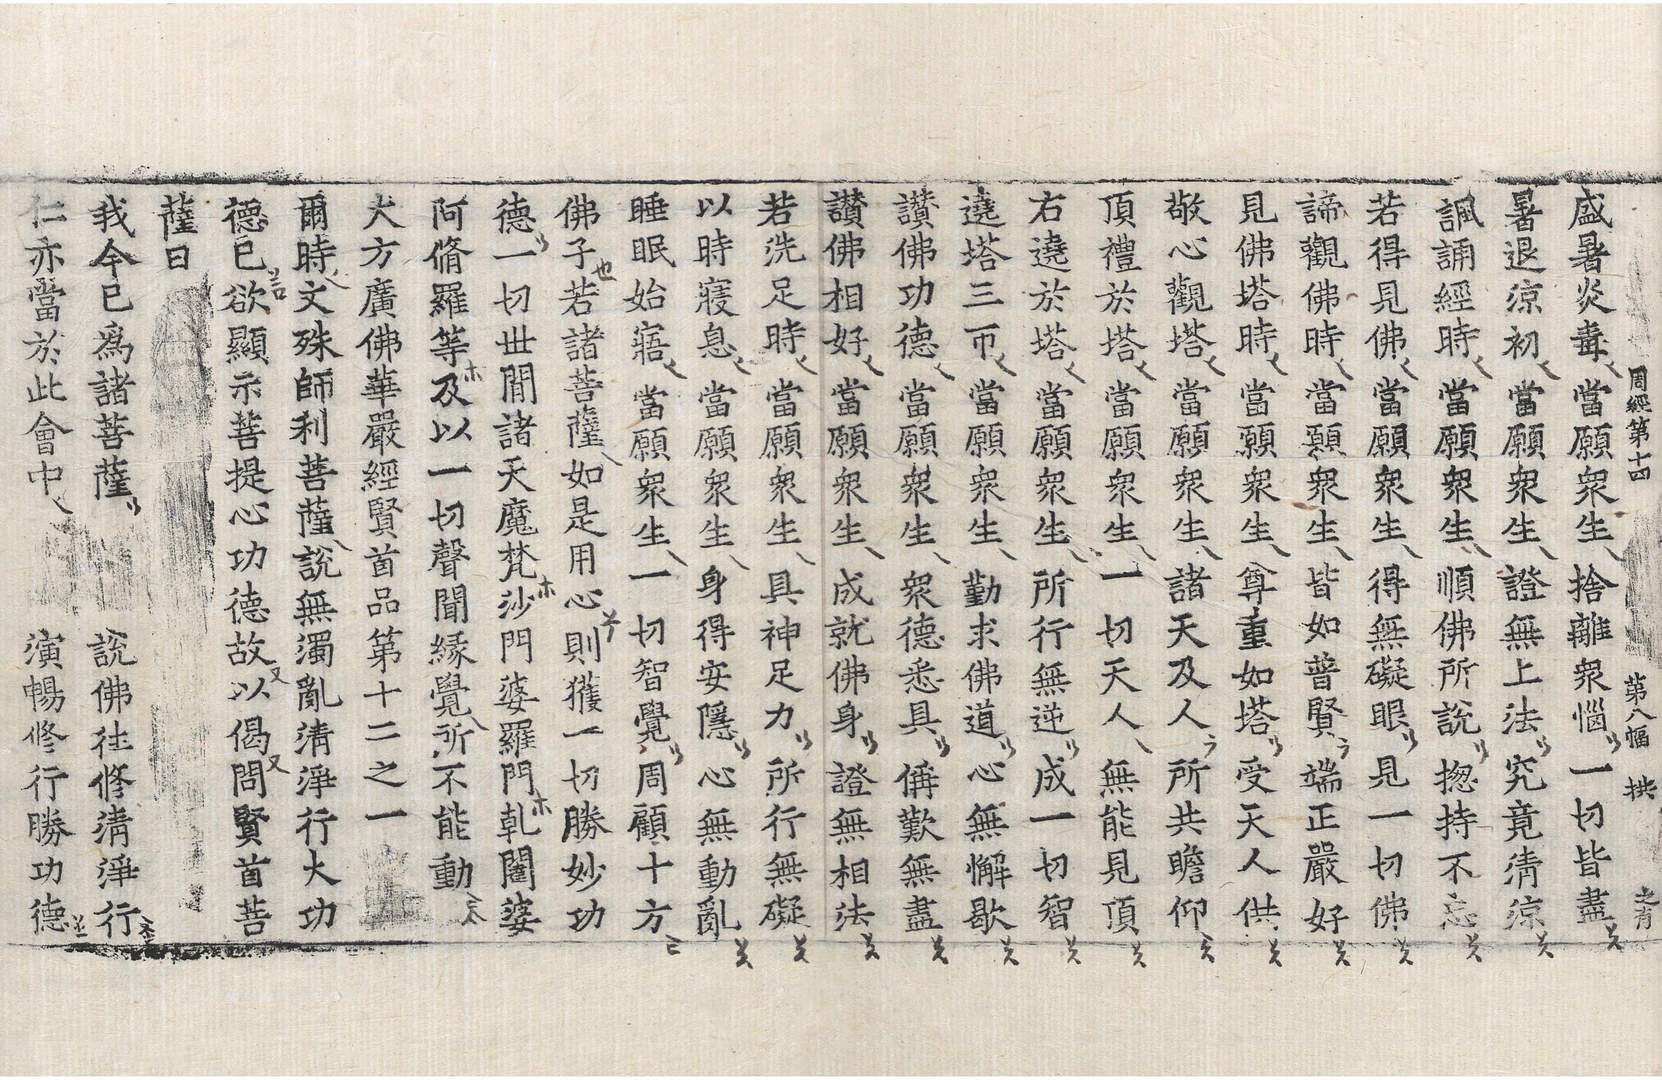 周經第十四 第八幅 拱 之有
盛暑炎毒 當願衆生 捨離衆惱 一切皆盡
暑退凉初 當願衆生 證無上法 究竟清凉
諷誦經時 當願衆生 順佛所說 揔持不忘
若得見佛 當願衆生 得無礙眼 見一切佛
諦觀佛時 當願衆生 皆如普賢 端正嚴好
見佛塔時 當願衆生 尊重如塔 受天人供
敬心觀塔 當願衆生 諸天及人 所共瞻仰
頂禮於塔 當願衆生 一切天人 無能見頂
右遶於塔 當願衆生 所行無逆 成一切智
遶塔三帀 當願衆生 勤求佛道 心無懈歇
讃佛功德 當願衆生 衆德悉具 偁歎無盡
讃佛相好 當願衆生 成就佛身 證無相法
若洗足時 當願衆生 具神足力 所行無礙
以時寢息 當願衆生 身得安隱 心無動亂
睡眠始寤 當願衆生 一切智覺 周顧十方
佛子若諸菩薩如是用心則獲一切勝妙功
德一切世間諸天魔梵沙門婆羅門乹闥婆
阿脩羅等及以一切聲聞緣覺所不能動
大方廣佛華嚴經賢首品第十二之一
爾時文殊師利菩薩說無濁亂清淨行大功
德已欲顯示菩提心功德故以偈問賢首菩
薩曰
我今已爲諸菩薩 說佛往修清淨行
仁亦當於此會中 演暢修行勝功德